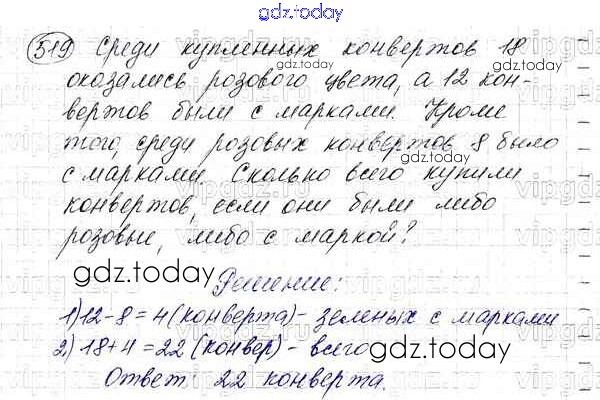 gdz.today
519 Среди купленных конвертов 18
оказались розового цвета, а 12 кон-
вертов были с марками. Кроме
gdz.today
того, среди розовых конвертов 8 было
gdz.today
с марками. Сколько всего купили
конвертов, если они были либо
розовые, либо с маркой?
gdz.today
gdz.today
Решение:
1) 12-8=4 (конверта)- зеленых с марками
2) 18+4=22 (конвер) - всего
gdz.today
Ответ: 22 конверта.